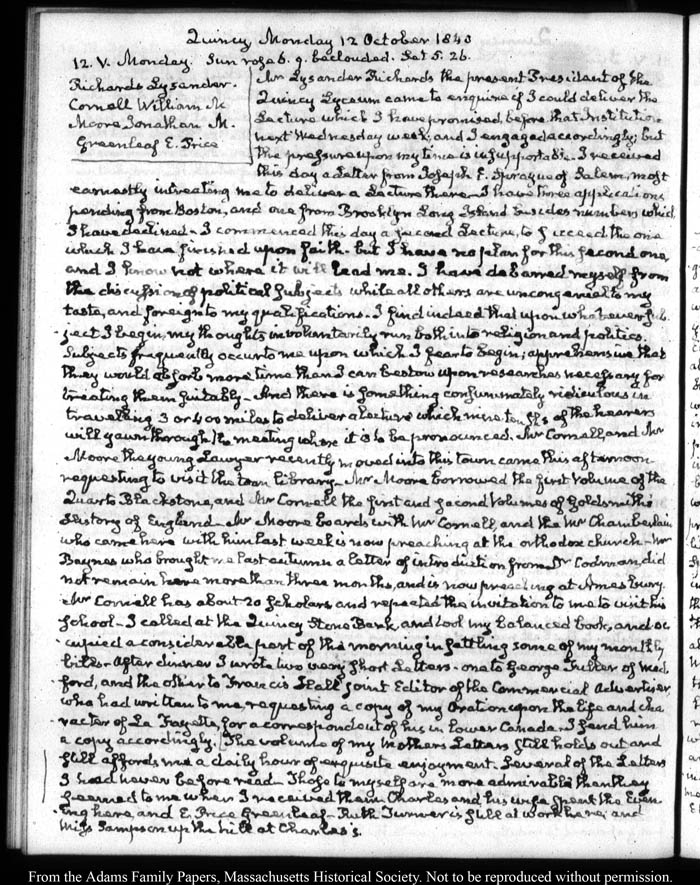 Quincy Monday 12 October 1840
12. V. Monday. Sun rose 6. 9. beclouded. Set 5. 26.
Richards Lysander.
Cornell William M
Moore Jonathan M.
Greenleaf E. Price
Mr Lysander Richards the present President of the
Quincy Lyceum came to enquire if I could deliver the
Lecture which I have promised, before that Institution
next Wednesday week; and I engaged accordingly; but
the pressure upon my time is insupportable. I received
this day a Letter from Joseph E. Sprague of Salem, most
earnestly intreating me to deliver a Lecture there. I have three applications
pending from Boston, and one from Brooklyn Long Island besides numbers which
I have declined. I commenced this day a second Lecture, to succeed the one
which I have finished upon faith. but I have no plan for this second one,
and I know not where it will lead me. I have debarred myself from
the discussion of political subjects while all others are uncongenial to my
taste, and foreign to my qualifications. I find indeed that upon whatever sub-
ject I begin, my thoughts involuntarily run both into religion and politics.
Subjects frequently occur to me upon which I fear to begin; apprehensive that
they would absorb more time than I can bestow upon researches necessary for
treating them suitably. And there is something consummately ridiculous in
travelling 3 or 400 miles to deliver a lecture which nine tenths of the hearers
will yawn through the meeting where it is to be pronounced. Mr Cornell, and Mr
Moore the young Lawyer recently moved into this town came this afternoon
requesting to visit the town library. Mr Moore borrowed the first volume of the
Quarto Blackstone, and Mr Cornell the first and second Volumes of Goldsmith's
History of England. Mr Moore boards with Mr Cornell, and the Mr Chamberlain
who came here with him last week is now preaching at the orthodox church. Mr
Baynes who brought me last autumn a letter of introduction from Dr Codman, did
not remain here more than three months, and is now preaching at Amesbury.
Mr Cornell has about 20 Scholars and repeated the invitation to me to visit his
School. I called at the Quincy Stone Bank, and took my balanced book, and oc-
cupied a considerable part of the morning in settling some of my monthly
bills. After dinner I wrote two very short Letters. one to George Fuller of Med-
ford, and the other to Francis Hall joint Editor of the Commercial Advertiser,
who had written to me, requesting a copy of my Oration upon the life and cha-
racter of La Fayette, for a correspondent of his in lower Canada. I send him
a copy accordingly. The volume of my Mothers Letters still holds out and
still affords me a daily hour of exquisite enjoyment. Several of the Letters
I had never before read. Those to myself are more admirable than they
seemed to me when I received them. Charles and his wife spent the Even-
ing here, and E. Price Greenleaf. Ruth Turner is still at work here; and
Miss Sampson up the hill at Charles's.
From the Adams Family Papers, Massachusetts Historical Society. Not to be reproduced without permission.